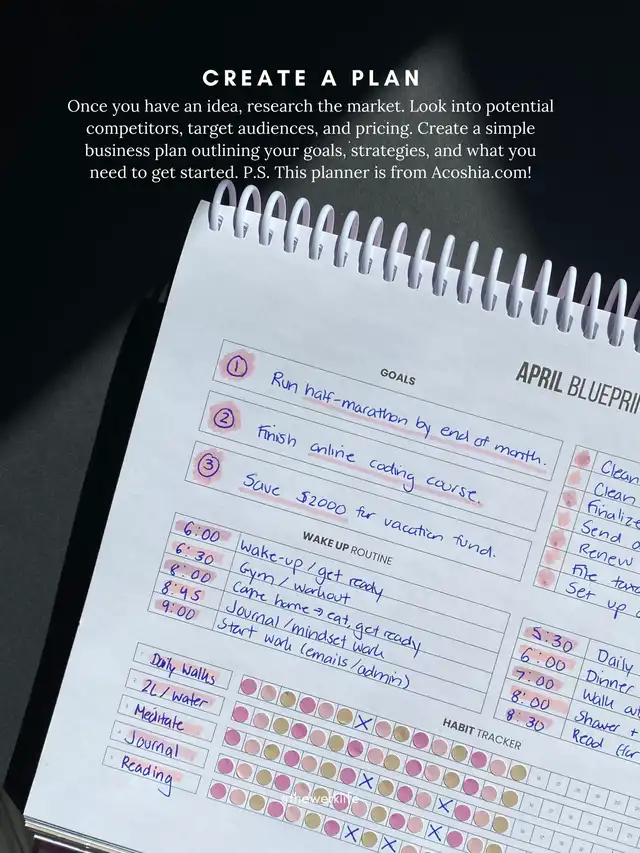 CREATE A PLAN
Once you have an idea, research the market. Look into potential
competitors, target audiences, and pricing. Create a simple
business plan outlining your goals, strategies, and what you
need to get started. P.S. This planner is from Acoshia.com!
APRIL BLUEPRIN
GOALS
1 Run half-marathon by end of month.
2 Finish online coding course.
3 Save $2000 for vacation fund.
Clean
Clean
Finalize
Send o
Renew
File taxe
Set up
WAKE UP ROUTINE
6:00 Wake-up / get ready
6:30 Gym / workout
8:00 Come home → eat, get ready
8:45 Journal / mindset work
9:00 Start work (emails / admin)
5:30 Daily
6:00 Dinner
7:00 Walk
8:00 Shower +
8:30 Read
HABIT TRACKER
Daily Walks
2L / water
Meditate
Journal
Reading
@thewerklife